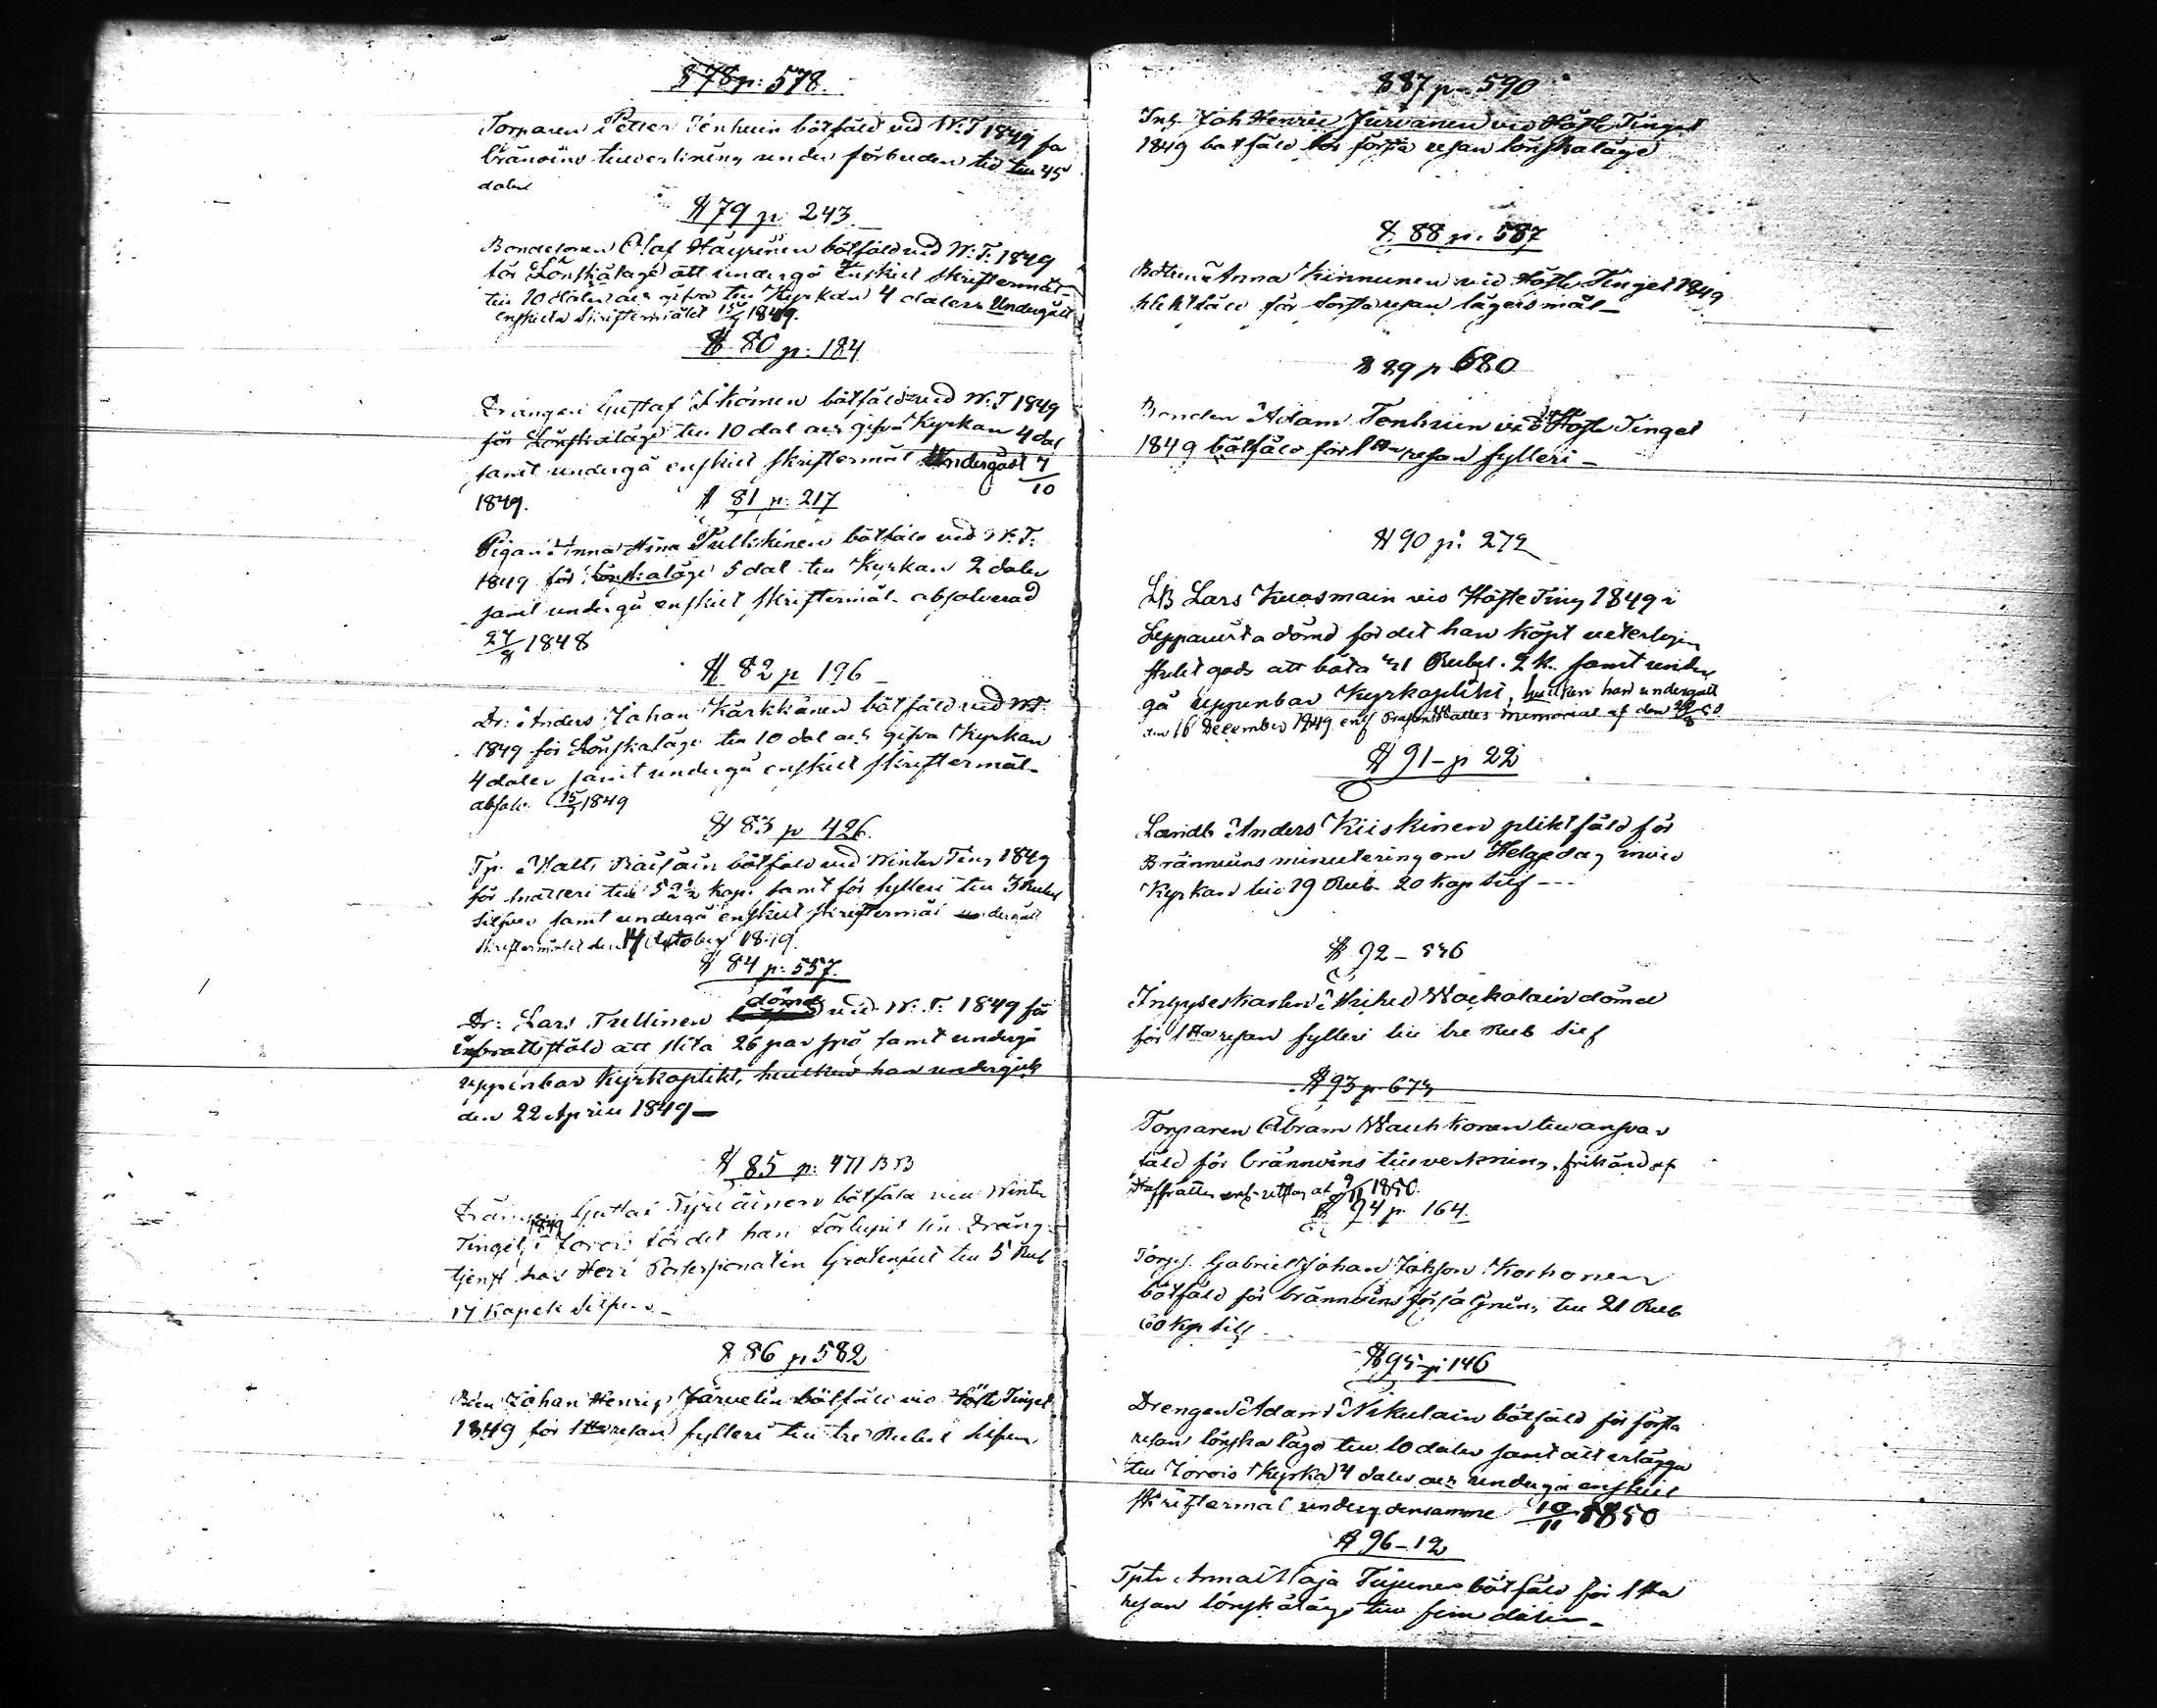 § 78 p: 578.
Torparen Petter Tenhuin bötfäld vid W.T 1849 för
bränvins tillverkning under förbuden tid till 45
daler
§ 79 p. 243
Bondesonen Olaf Häyrinen bötfäld vid W: T: 1849
för Lönskaläge att undergå enskilt skriftermål
till 10 daler och gifva till Kyrkan 4 daler. Undergått
enskilda skriftermålet 15/7 1849.
§ 80 p: 184
Drängen Gustaf Ikoinen bötfäld vid W.T 1849
för Lönskaläge till 10 dal och gifva Kyrkan 4 dal
samt undergå enskilt skriftermål Undergått 7/10
1849.
§ 81 p: 217
Pigan Anna Stina Pullikinen bötfäld vid W: T:
1849 för lönskaläge 5 dal till Kyrkan 2 daler
samt undergå enskilt skriftermål. absolverad
27/8 1848
§ 82 p 196
Dr: Anders Johan Kärkkänen bötfäld vid WT
1849 för Lönskaläge till 10 dal och gifva Kyrkan
4 daler samt undergå enskilt skriftermål
absolv. 15/7 1849
§ 83 p 426.
Tp: Matts Räisäin bötfäld vid Winter Ting 1849
för snatteri till 52½ kop. samt för fylleri till 3 Rubel
silfver samt undergå enskilt skriftermål undergått
skriftermålet den 14 October 1849.
§ 84 p: 557.
Dr: Lars Trellinen dömd vid W. T: 1849 för
inbrottsstöld att slita 26 par spö samt undergå
uppenbar Kyrkoplikt, hvilken han undergick
den 22 April 1849 —
§ 85 p: 471 BB
Drängen Gustaf Tyrläinen bötfäld vid Winter
Tinget 1849 i Jorois för det han förlupit sin Dräng
tjenst hos Herr till 5 Rub
17 Kopek Silfver
§ 86 p 582
Johan Henric Järvelin bötfäld vid Höste Tinget
1849 för 1sta resan fylleri till tre Rubel silfver
§ 87 p – 590
Joh Henric Jürvanen vid Höste Tinget
1849 botfäld för första resan lönskaläge
§ 88 p. 587
Anna Kinnunen vid Höste Tinget 1849
pliktfäld för första resan lägersmål –
§ 89 p 680
Bonden Adam Tenhuin vid Höste Tinget
1849 bötfäld för 1sta resan fylleri –
§ 90 p: 272
LB Lars Kuosmain vid Höste Ting 1849 i
Leppävirta dömd för det han köpt veterligen
stulit gods att böta 41 Rubel. 2 k. samt under
gå uppenbar Kyrkoplikt, hvilken han undergått
den 16 December 1849 enl memorial af den
§ 91 – p 22
Landb Anders Kiiskinen pliktfäld för
Bränvins minutering om Helgedag invid
Kyrkan till 19 Rub 20 kop silf ---
§ 92 – 546
Michel Wäckäläin dömd
för 1sta resan fylleri till tre Rub silf
§ 93 p 673
Torparen Abram Wauhkonen till ansvar
fäld för bränvins tillverkning, frikänd af
1850.
§ 94 p 164.
Gabriel Johan Johson Korhonen
bötfäld för bränvins försäljning till 21 Rub
60 kop silf
§ 95 p: 146
Drengen Adam Nikulain bötfäld för första
resan lönskaläge till 10 daler samt att erlägga
till Jorois Kyrka 4 daler och undergå enskilt
skriftermål undergick densamme 10/11 1850
§ 96 – 12
Anna Maja Tiijunen bötfäld för 1sta
resan lönskaläge till fem daler –